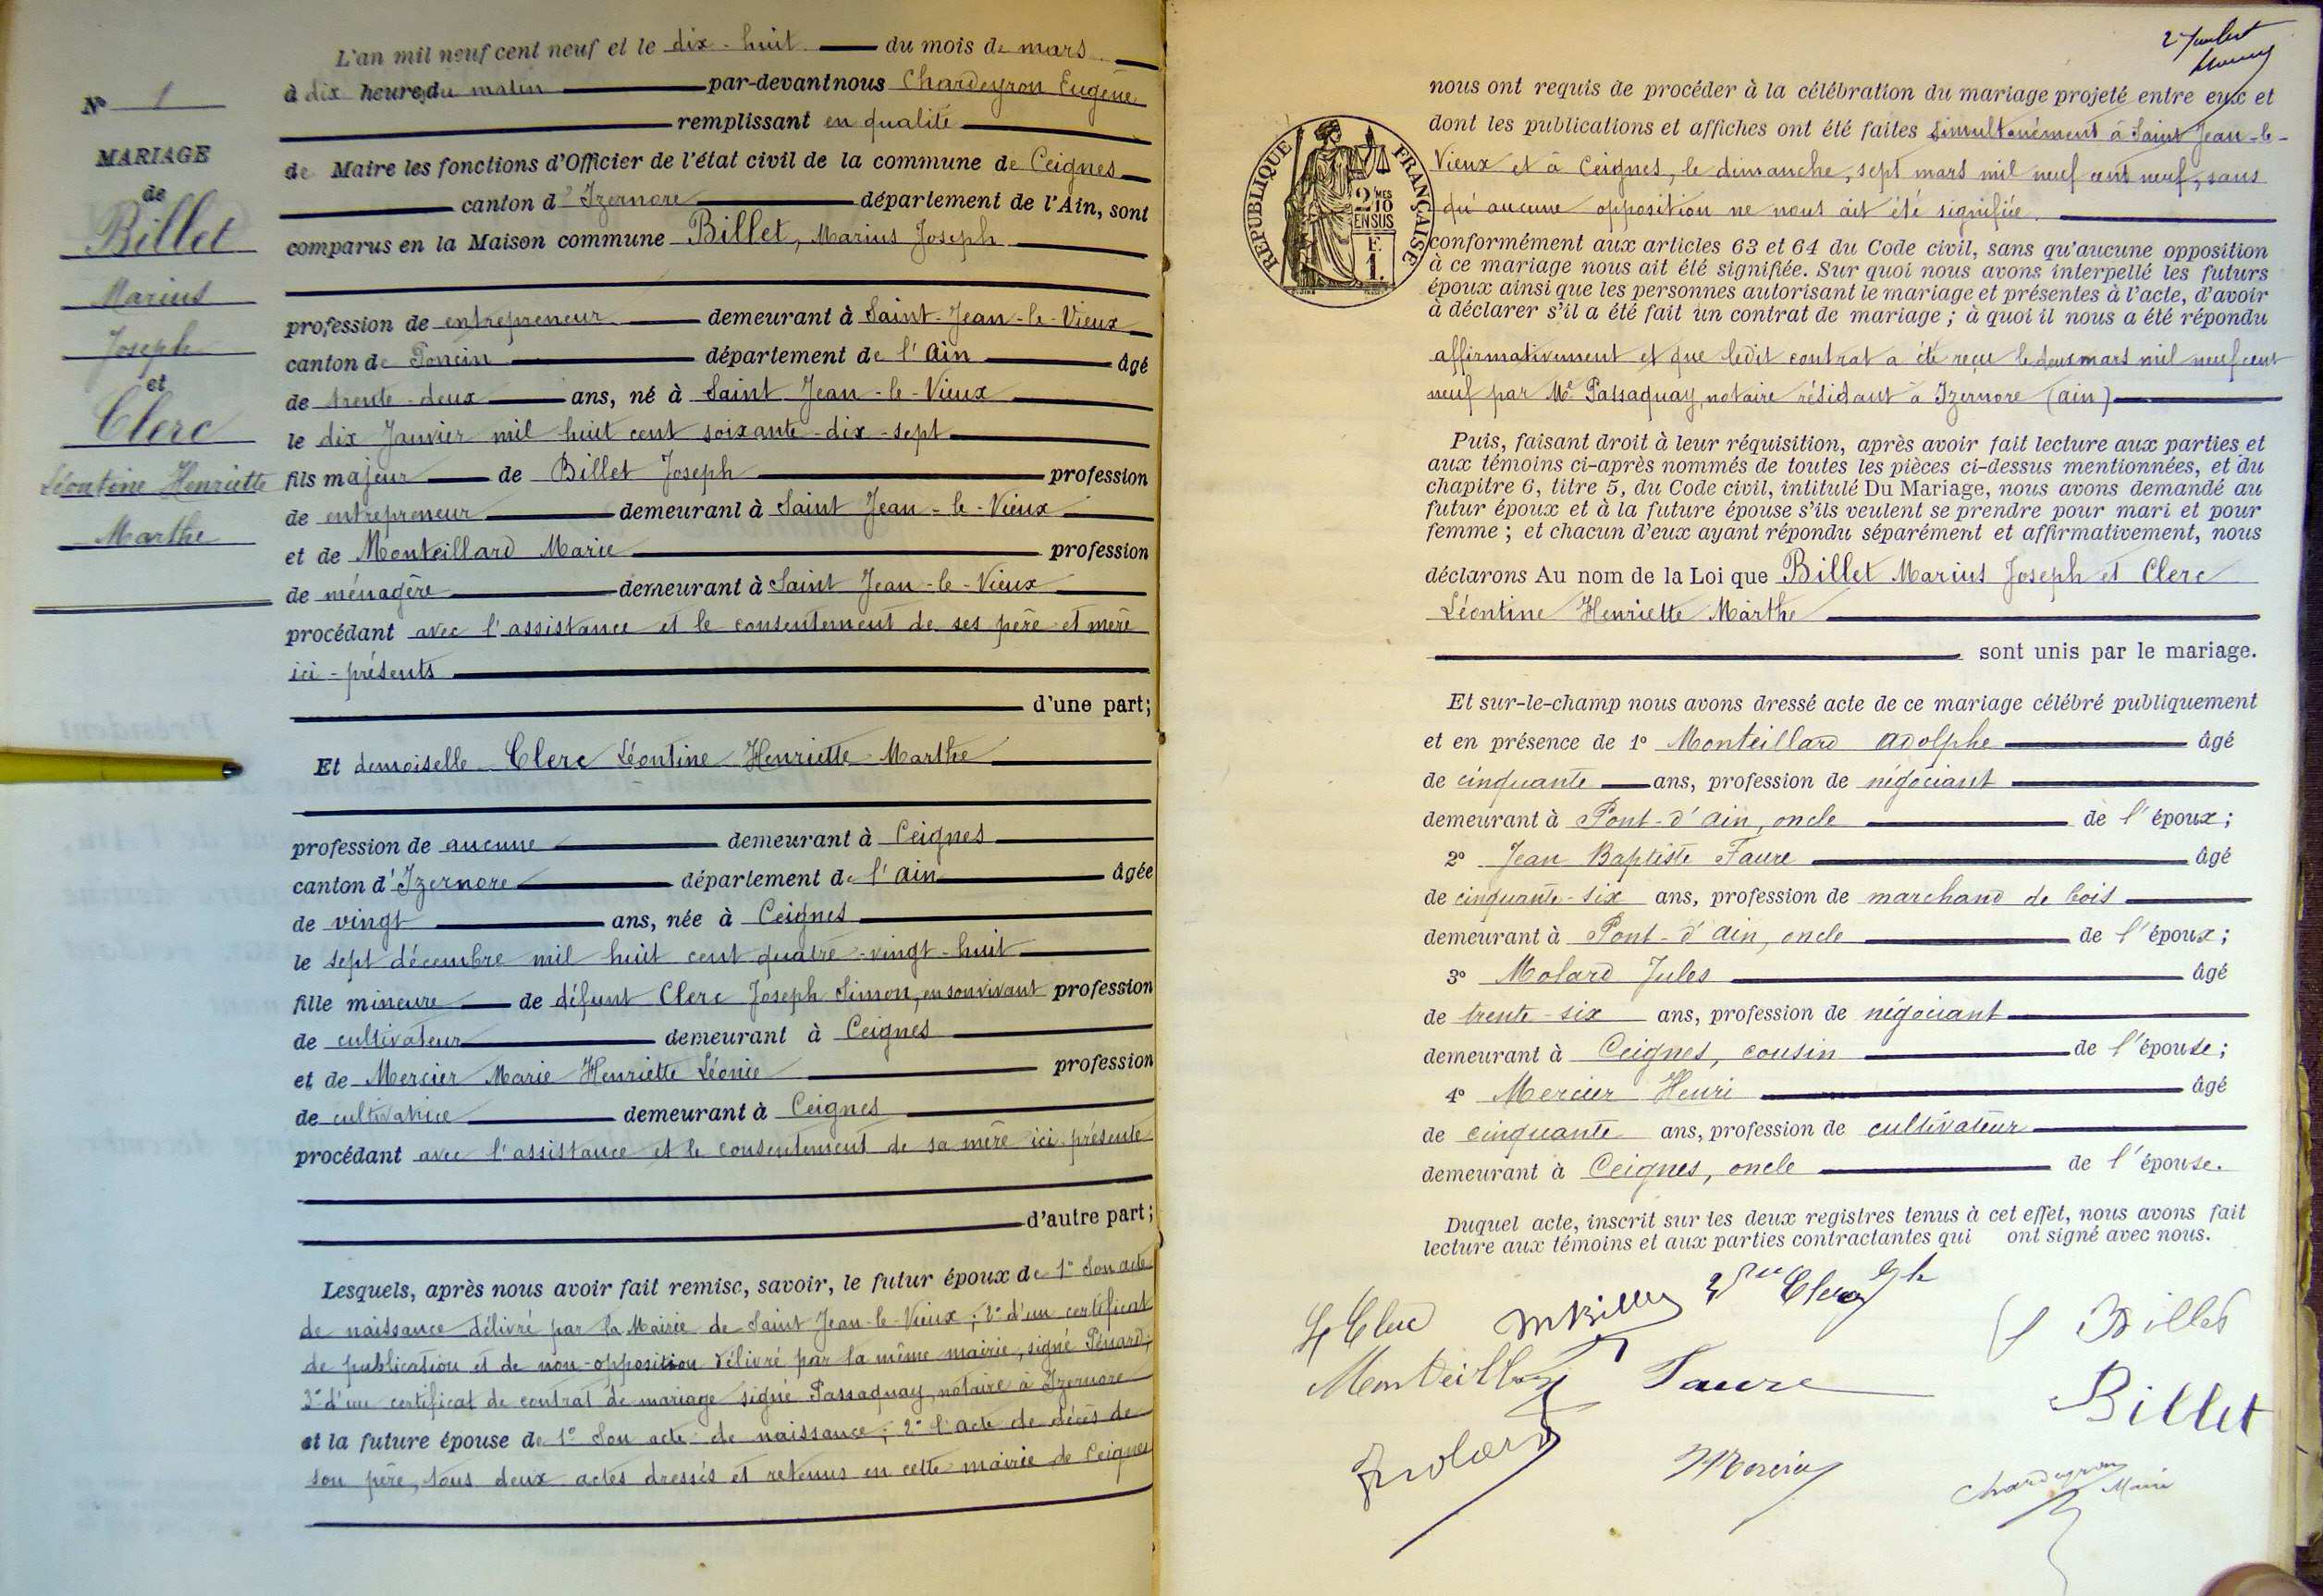 N° 1
MARIAGE
de
Billet
Marius
Joseph
et
Clerc
Léontine Henriette
Marthe
L'an mil neuf cent neuf et le dix-huit du mois de mars
à dix heures du matin par-devant nous Chardeyron Eugène
remplissant en qualité
de Maire les fonctions d'Officier de l'état civil de la commune de Ceignes
canton d'Izernore département de l'Ain, sont
comparus en la Maison commune Billet, Marius Joseph
profession de entrepreneur demeurant à Saint-Jean-le-Vieux
canton de Poncin département de l'Ain âgé
de trente-deux ans, né à Saint Jean-le-Vieux
le dix Janvier mil huit cent soixante-dix-sept
fils majeur de Billet Joseph profession
de entrepreneur demeurant à Saint Jean-le-Vieux
et de Monteillard Marie profession
de ménagère demeurant à Saint Jean-le-Vieux
procédant avec l'assistance et le consentement de ses père et mère
ici-présents
d'une part;
Et demoiselle Clerc Léontine Henriette Marthe
profession de aucune demeurant à Ceignes
canton d'Izernore département de l'Ain âgée
de vingt ans, née à Ceignes
le sept décembre mil huit cent quatre-vingt-huit
fille mineure de défunt Clerc Joseph Simon, en son vivant profession
de cultivateur demeurant à Ceignes
et de Mercier Marie Henriette Léonie profession
de cultivatrice demeurant à Ceignes
procédant avec l'assistance et le consentement de sa mère ici-présente
d'autre part;
Lesquels, après nous avoir fait remise, savoir, le futur époux de 1° Son acte
de naissance délivré par la Mairie de Saint Jean-le-Vieux; 2° d'un certificat
de publication et de non-opposition délivré par la même mairie, signé
3° d'un certificat de contrat de mariage signé Passaquay, notaire à Izernore
et la future épouse de 1° Son acte de naissance; 2° l'acte de décès de
son père, tous deux actes dressés et retenus en cette mairie de Ceignes
2 Juillet
nous ont requis de procéder à la célébration du mariage projeté entre eux et
dont les publications et affiches ont été faites simultanément à Saint Jean-le-
Vieux et à Ceignes, le dimanche, sept mars mil neuf cent neuf, sans
qu'aucune opposition ne nous ait été signifiée.
RÉPUBLIQUE FRANÇAISE
2/10MES
EN SUS
F.
1.
conformément aux articles 63 et 64 du Code civil, sans qu'aucune opposition
à ce mariage nous ait été signifiée. Sur quoi nous avons interpellé les futurs
époux ainsi que les personnes autorisant le mariage et présentes à l'acte, d'avoir
à déclarer s'il a été fait un contrat de mariage; à quoi il nous a été répondu
affirmativement et que ledit contrat a été reçu le deux mars mil neuf cent
neuf par Me Passaquay, notaire résidant à Izernore (Ain)
Puis, faisant droit à leur réquisition, après avoir fait lecture aux parties et
aux témoins ci-après nommés de toutes les pièces ci-dessus mentionnées, et du
chapitre 6, titre 5, du Code civil, intitulé Du Mariage, nous avons demandé au
futur époux et à la future épouse s'ils veulent se prendre pour mari et pour
femme; et chacun d'eux ayant répondu séparément et affirmativement, nous
déclarons Au nom de la Loi que Billet Marius Joseph et Clerc
Léontine Henriette Marthe
sont unis par le mariage.
Et sur-le-champ nous avons dressé acte de ce mariage célébré publiquement
et en présence de 1° Monteillard Adolphe âgé
de cinquante ans, profession de négociant
demeurant à Pont-d'Ain, oncle de l'époux;
2° Jean Baptiste Faure âgé
de cinquante-six ans, profession de marchand de bois
demeurant à Pont-d'Ain, oncle de l'époux;
3° Molard Jules âgé
de trente-six ans, profession de négociant
demeurant à Ceignes, cousin de l'épouse;
4° Mercier Henri âgé
de cinquante ans, profession de cultivateur
demeurant à Ceignes, oncle de l'épouse.
Duquel acte, inscrit sur les deux registres tenus à cet effet, nous avons fait
lecture aux témoins et aux parties contractantes qui ont signé avec nous.
Clerc M Billet Vve Clerc J Billet
Monteillard Faure Billet
Molard Mercier Chardeyron Maire